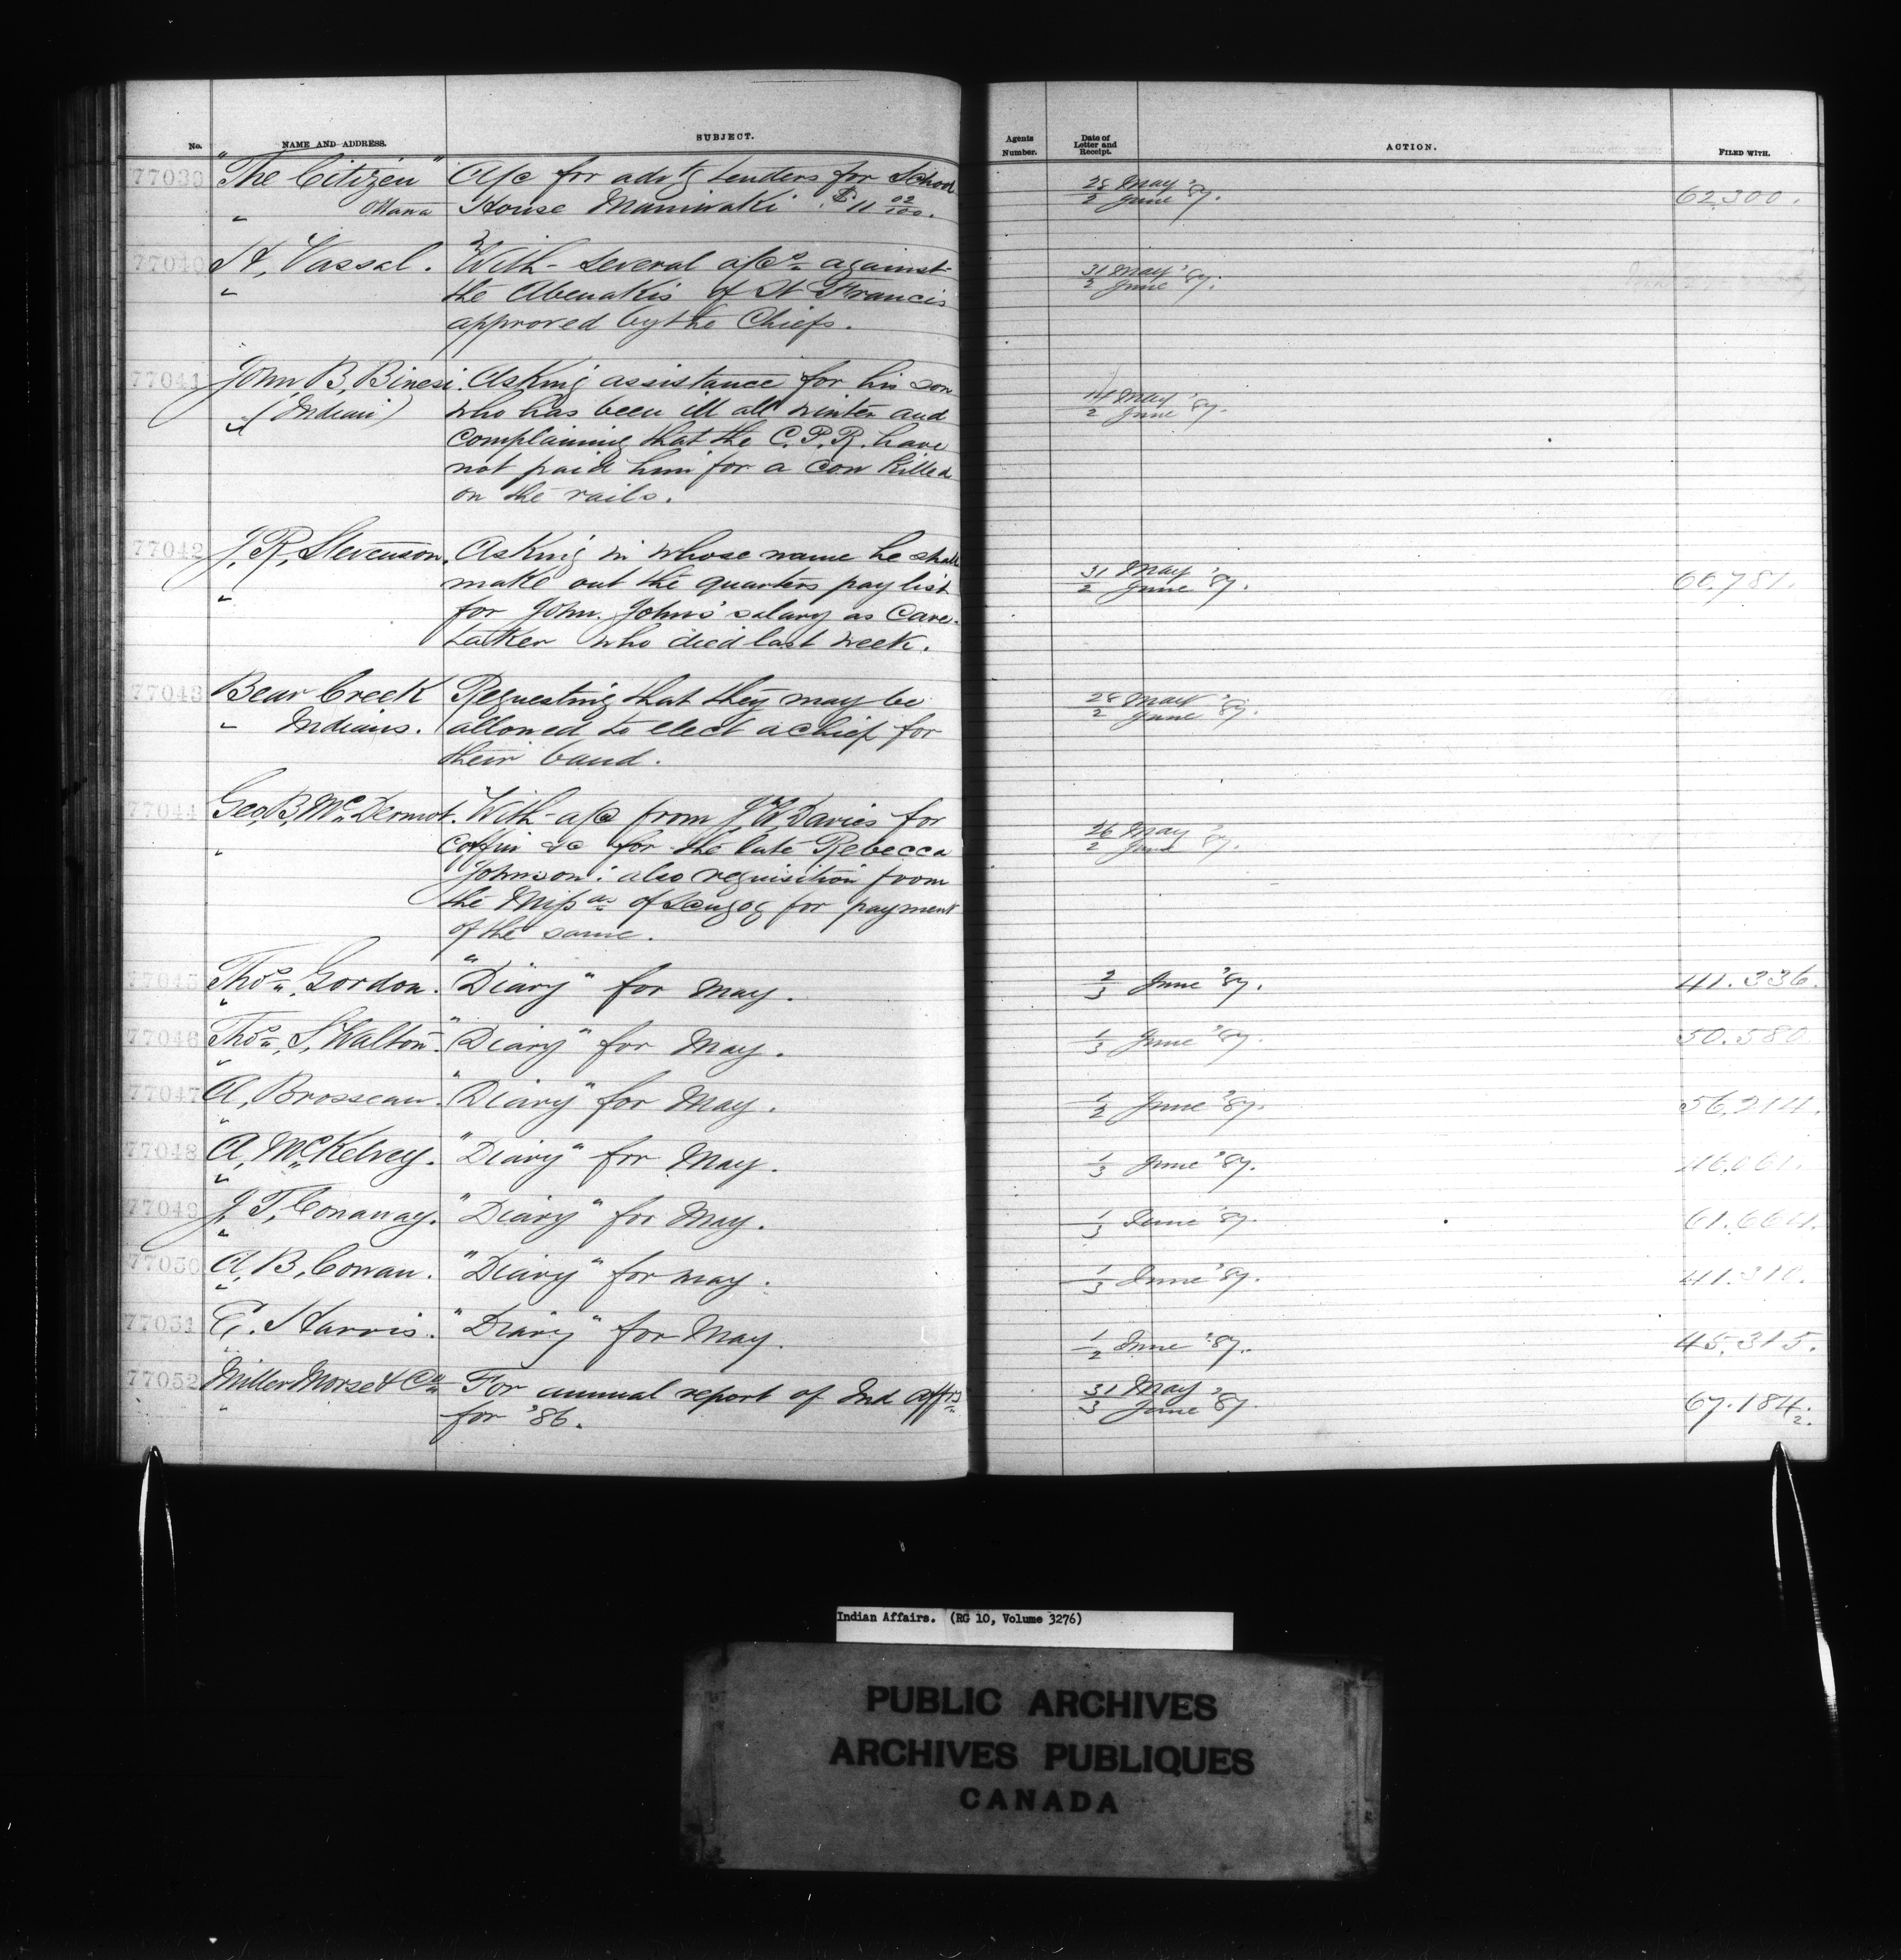 No. NAME AND ADDRESS. SUBJECT. Agents Number. Date of Letter and Receipt. ACTION. FILED WITH.
77039 "The Citizen" A/c for advtg tenders for School 28 May '87. 62,300.
" Ottawa House Maniwaki $11 02/100. 2 June
77040 H. Vassal. With several a/cs against 31 May '87.
" the Abenakis of St Francis 2 June
approved by the Chiefs.
77041 John B. Binesi. Asking assistance for his son 14 May '87.
" (Indian) who has been ill all winter and 2 June
complaining that the C.P.R. have
not paid him for a cow killed
on the rails.
77042 J. R. Stevenson. Asking in whose name he shall 31 May '87. 66,781.
" make out the quarters pay list 2 June
for John Johns' salary as Care-
taker who died last week.
77043 Bear Creek Requesting that they may be 28 May '87.
" Indians. allowed to elect a chief for 2 June
their band.
77044 Geo. B. McDermot. With a/c from J. W. Davies for 26 May '87.
" Coffin &c for the late Rebecca 2 June
Johnson: also requisition from
the Missas of Scugog for payment
of the same.
77045 Thos. Gordon. "Diary" for May. 2/3 June '87. 41.336.
77046 Thos. S. Walton. "Diary" for May. 1/3 June '87. 50.580
77047 A. Brosseau. "Diary" for May. 1/2 June '87. 56,214.
77048 A. McKelvey. "Diary" for May. 1/3 June '87. 46,061.
77049 J. T. Conaway. "Diary" for May. 1/3 June '87. 61.664.
77050 A. B. Cowan. "Diary" for May. 1/3 June '87. 41.310.
77051 E. Harris. "Diary" for May. 1/2 June '87. 45,315.
77052 Miller Morse & Co. For annual report of Ind Affrs 31 May '87 67.184.2.
" for '86. 3 June
Indian Affairs. (RG 10, Volume 3276)
PUBLIC ARCHIVES
ARCHIVES PUBLIQUES
CANADA